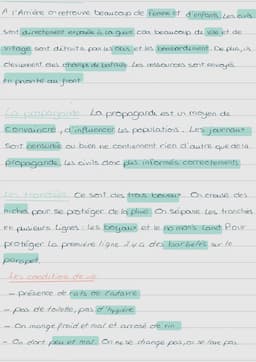 A l'Arrière on retrouve beaucoup de femme et d'enfants. Les civils
sont directement exposés à la guerre car beaucoup de ville et de
village sont détruite par les obus et les bombardement. De plus, ils
deviennent des champs de bataille. Les ressources sont envoyés
en priorité au front.
La propagande : La propagande est un moyen de
convaincre, d'influencer les populations. Les journaux
sont censurés ou bien ne contiennent rien d'autre que de la
propagande. Les civils donc plus informés correctement.
Les tranchées : Ce sont des trous boueux. On creuse des
niches pour se protéger de la pluie. On sépare les tranchés
en plusieurs lignes : les boyaux et le no man's land. Pour
protéger la première ligne il y a des barbelés sur le
parapet.
Les conditions de vie :
- présence de rats de cadavre
- pas de toilette, pas d'hygiène
- On mange froid et mal et arrosé de vin
- On dort peu et mal. On ne se change pas, on se lave pas